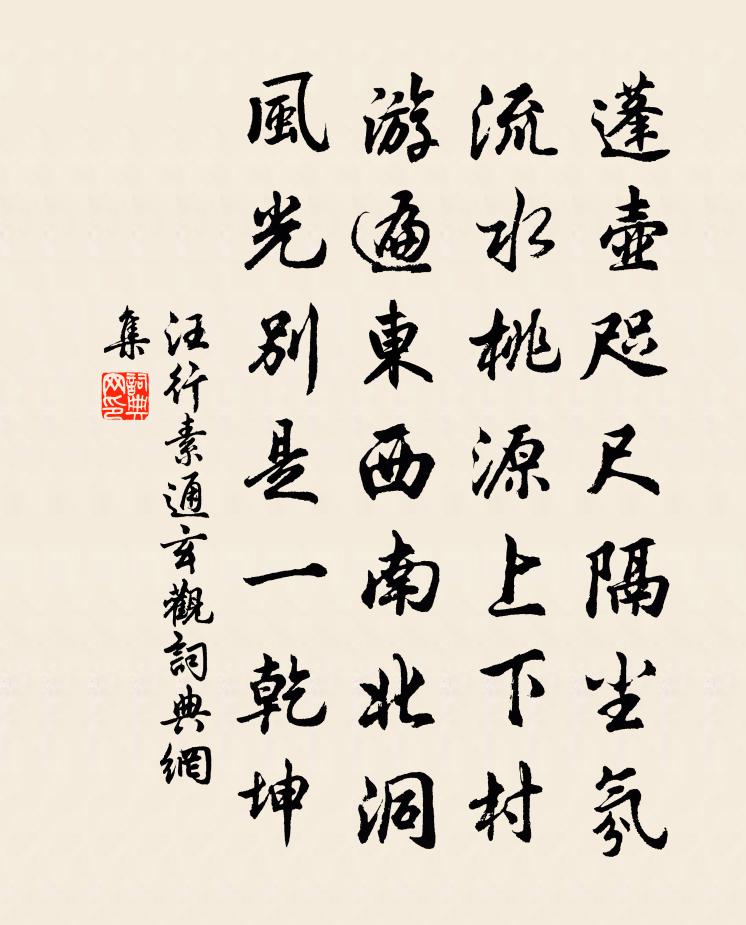 蓬壺咫尺隔尘氛
流水桃源上下村
游遍東西南北洞
風光別是一乾坤
汪行素通玄觀詞典網
集
詞典
网印